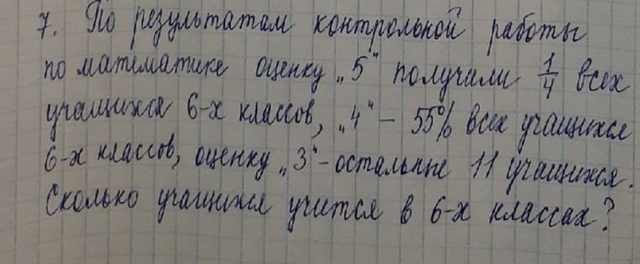 7. По результатам контрольной работы
по математике оценку „5" получили 1/4 всех
учащихся 6-х классов, „4" – 55% всех учащихся
6-х классов, оценку „3" – остальные 11 учащихся.
Сколько учащихся учится в 6-х классах?